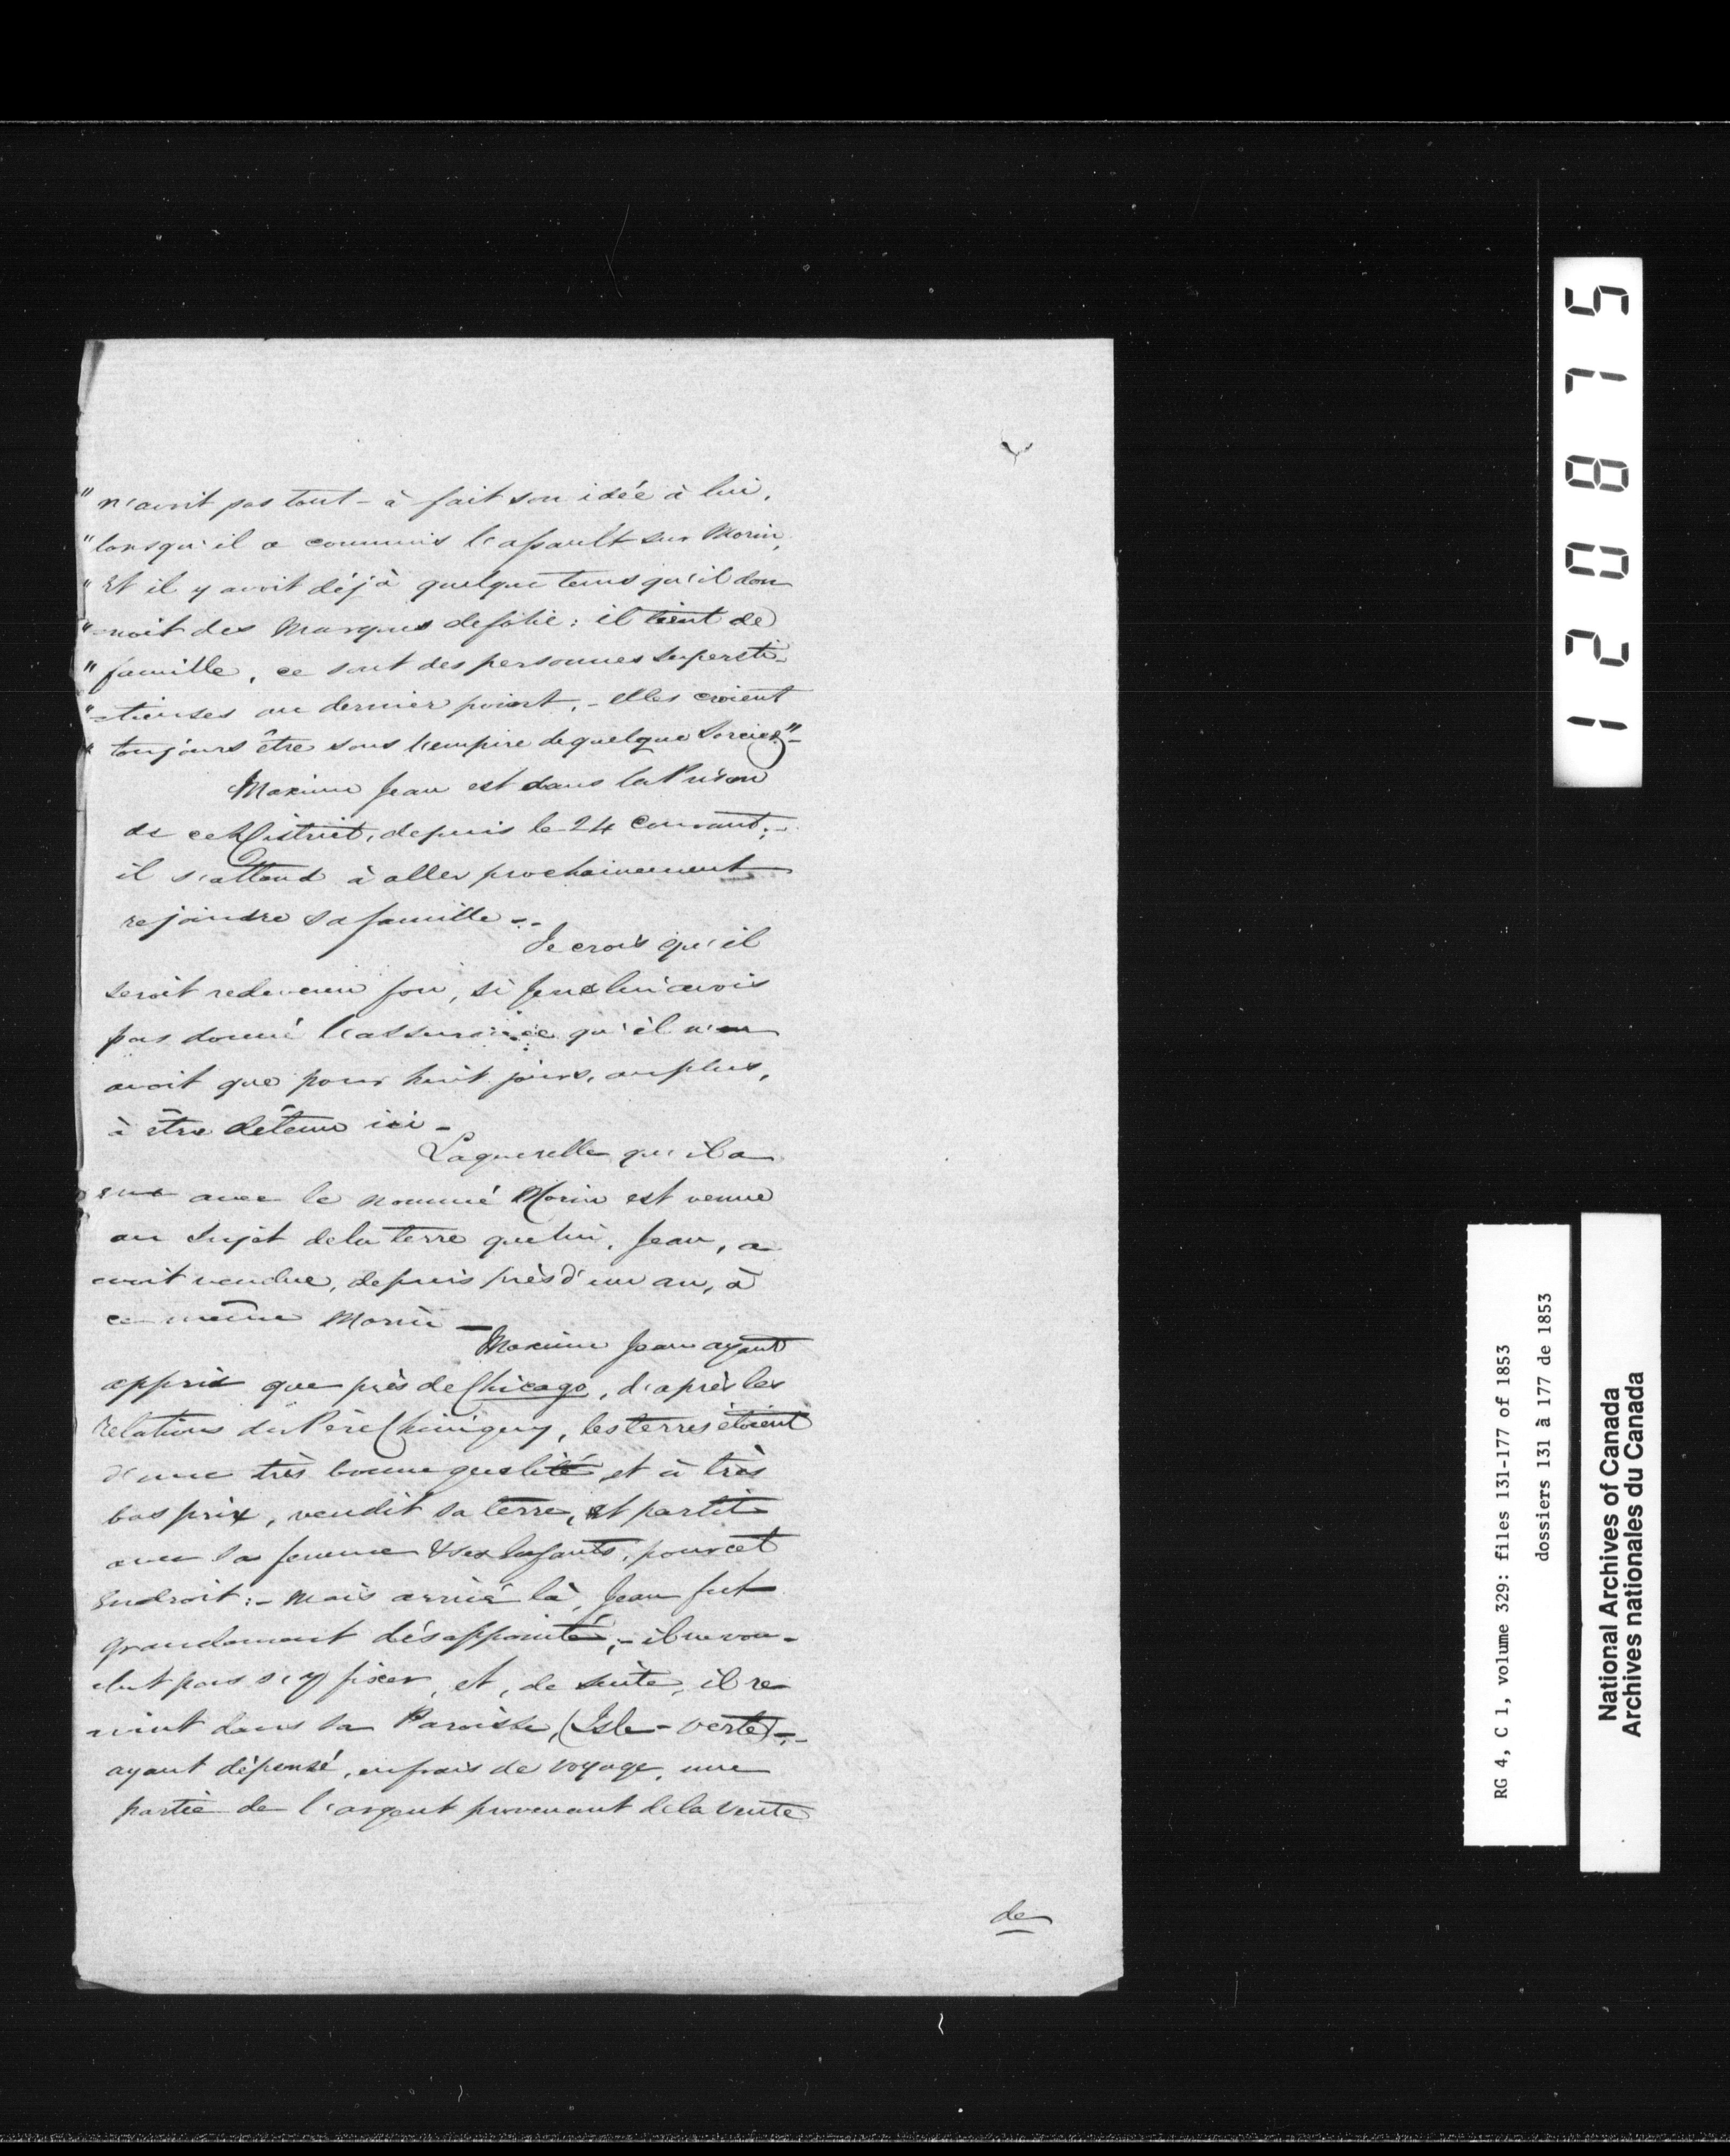 " n'avoit pas tout-à fait son idée à lui,
" lorsqu'il a commis l'assault sur Morin,
" Et il y avoit déjà quelque tems qu'il don
"-noit des Marques de folie: il tient de
" famille, ce sont des personnes supersti-
"-tieuses au dernier point,- elles croient
" toujours être sous l'empire de quelque Sorcier"-
Maxime Jean est dans la Prison
de ce District, depuis le 24 Courant;-
il s'attend à aller prochainement
rejoindre sa famille --
Je crois qu'il
seroit redevenu fou, si Je ne lui avois
pas donné l'assurance qu'il n'en
avoit que pour huit jours, au plus,
à être détenu ici -
La querelle qu'il a
eue avec le nommé Morin est venue
au Sujet de la terre que lui, Jean, a
voit vendue, depuis près d'un an, à
ce même Morin —
Maxime Jean ayant
appris que près de Chicago, d'après les
relations du Père Chiniquy, les terres étoient
d'une très bonne qualité et à très
bas prix, vendit sa terre, et partit
avec sa femme & ses Enfants, pour cet
Endroit:- Mais arrivé là, Jean fut
grandement désappointé;- il ne vou-
lut pas s'y fixer, et, de suite, il re
vint dans sa Paroisse, (Isle-verte)--
ayant dépensé, en frais de voyage, une
partie de l'argent provenant de la Vente
de
120875
RG 4, C 1, volume 329: files 131-177 of 1853
dossiers 131 à 177 de 1853
National Archives of Canada
Archives nationales du Canada